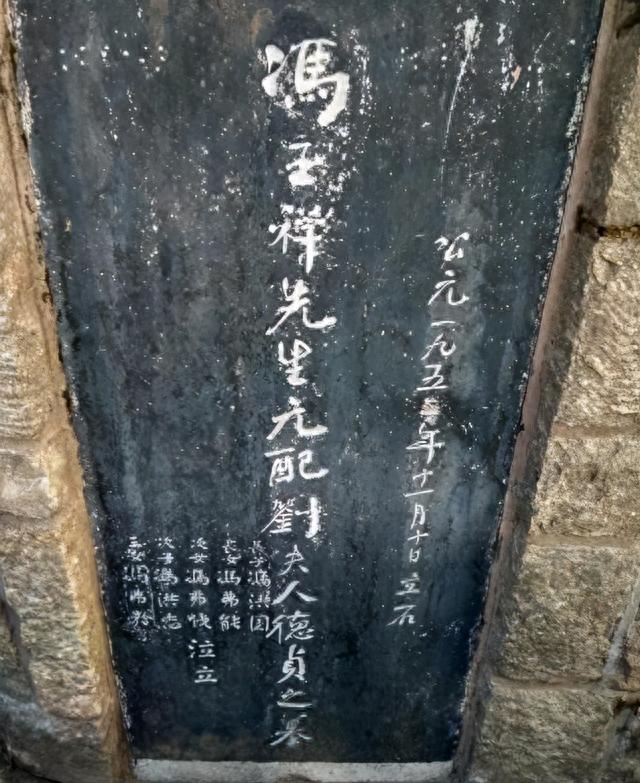 公元一九五年十一月十日立石
馮玉祥先生元配劉夫人德貞之墓
長子馮洪国
長女馮弗能
次女馮弗伐
次子馮洪志
三女馮弗矜
泣立